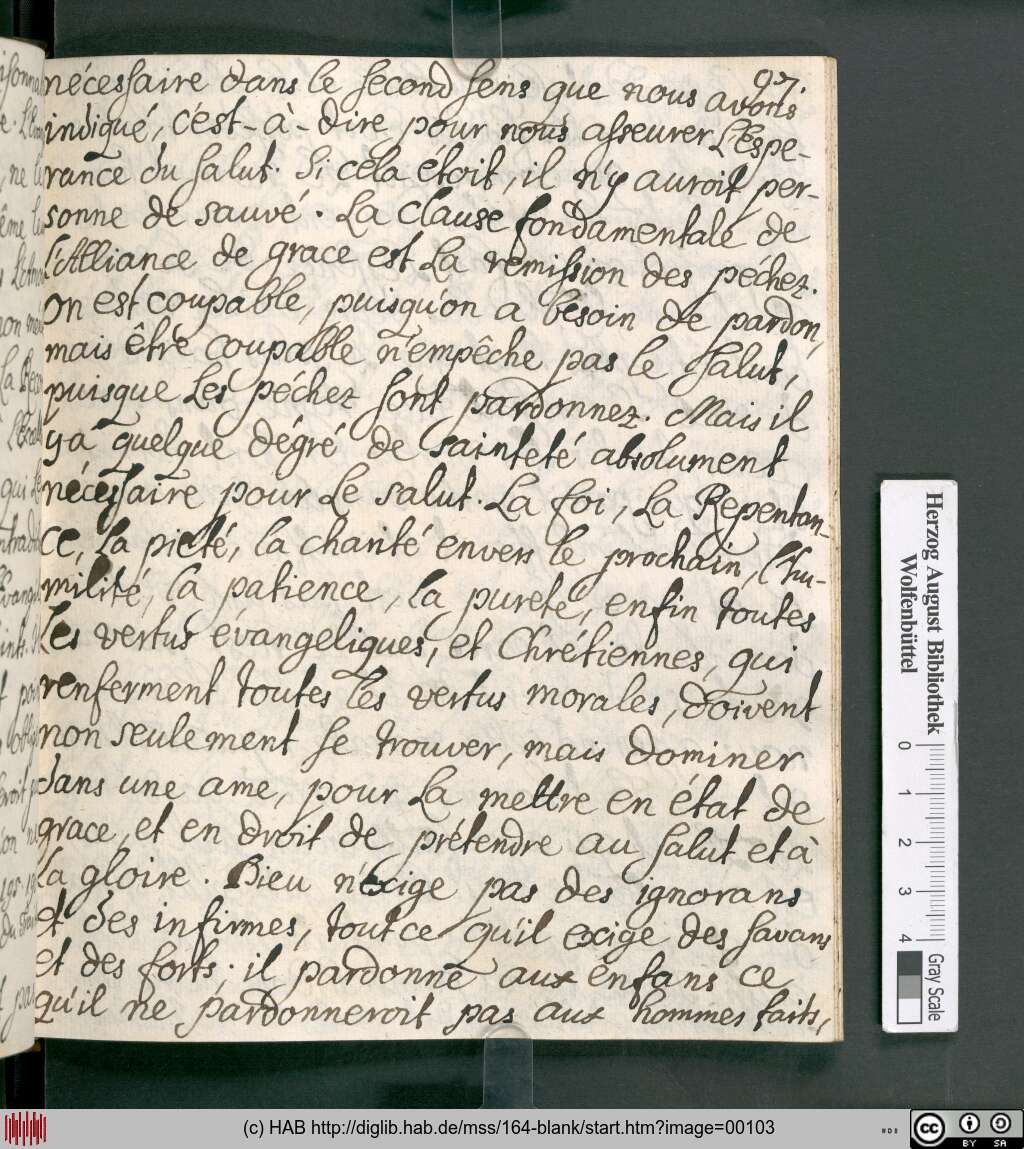 97.
nécessaire dans le second sens que nous avons
indiqué, c'est-à-dire pour nous asseurer L'Espe-
rance du salut. Si cela étoit, il n'y auroit per-
sonne de sauvé. La clause fondamentale de
l'Alliance de grace est La remission des péchez.
On est coupable, puisqu'on a besoin de pardon,
mais être coupable n'empêche pas le salut,
puisque Les péchez sont pardonnez. Mais il
y a quelque dégré de sainteté absolument
nécessaire pour Le salut. La foi, La Repentan-
ce, la pieté, la charité envers le prochain, l'hu-
milité, la patience, la pureté, enfin toutes
Les vertus évangeliques, et Chrétiennes, qui
renferment toutes les vertus morales, doivent
non seulement se trouver, mais dominer
dans une ame, pour La mettre en état de
grace, et en droit de prétendre au salut et à
la gloire. Dieu n'exige pas des ignorans
et des infirmes, tout ce qu'il exige des savans
et des forts; il pardonne aux enfans ce
qu'il ne pardonneroit pas aux hommes faits,
Herzog August Bibliothek
Wolfenbüttel
0 1 2 3 4
Gray Scale
(c) HAB http://diglib.hab.de/mss/164-blank/start.htm?image=00103
cc BY SA